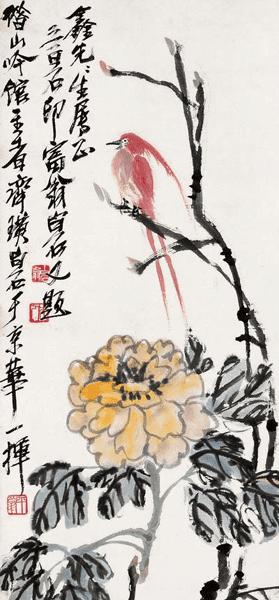 鑫先生屬正
三百石印富翁白石又題
借山吟館主者齊璜白石于京華一揮